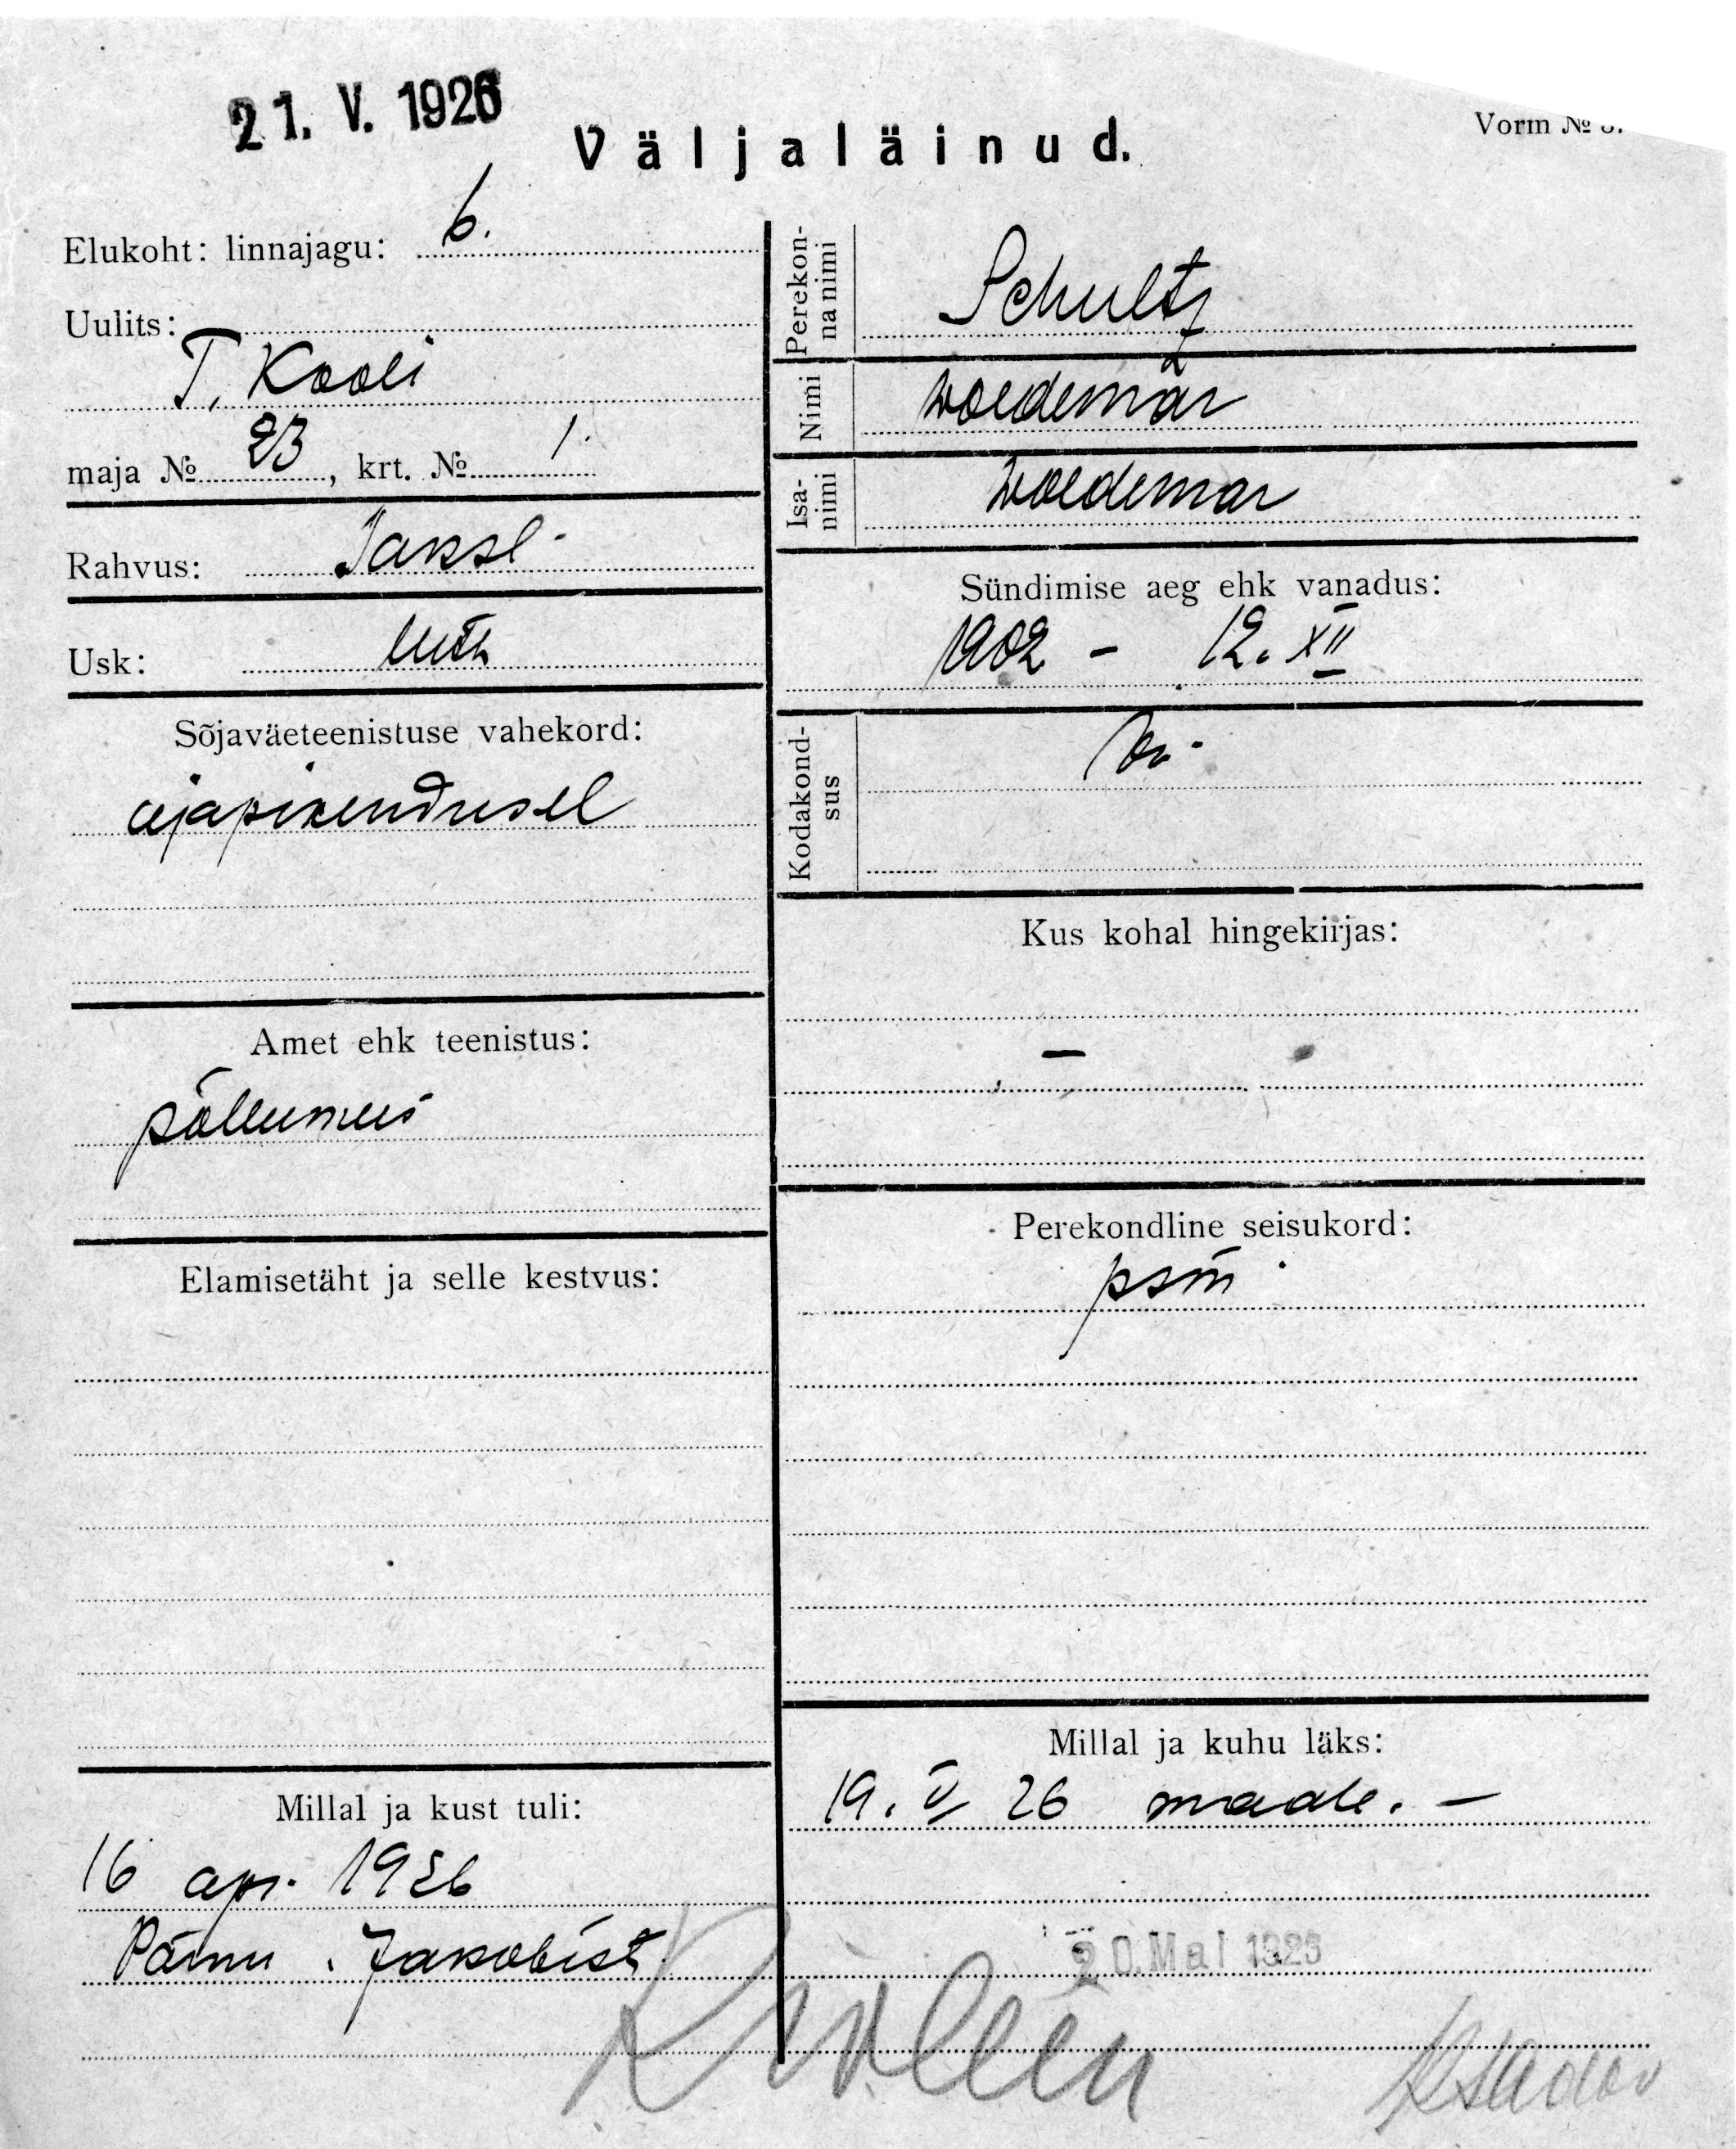 21. V. 1926
Väljaläinud.
Vorm №
Elukoht: linnajagu: 6.
Uulits:
T. Kooli
maja № 23, krt. № 1.
Rahvus: Saksl.
Usk: luth
Sõjaväeteenistuse vahekord:
ajapikendusel
Amet ehk teenistus:
põllumees
Elamisetäht ja selle kestvus:
Millal ja kust tuli:
16 apr. 1926
Pärnu. Jakobist
Perekonna nimi
Schultz
Nimi
Woldemar
Isanimi
Woldemar
Sündimise aeg ehk vanadus:
1902 - 12. XII
Kodakondsus
Kus kohal hingekirjas:
-
Perekondline seisukord:
psm.
Millal ja kuhu läks:
19. V 26 maale. -
20. Mai 1926